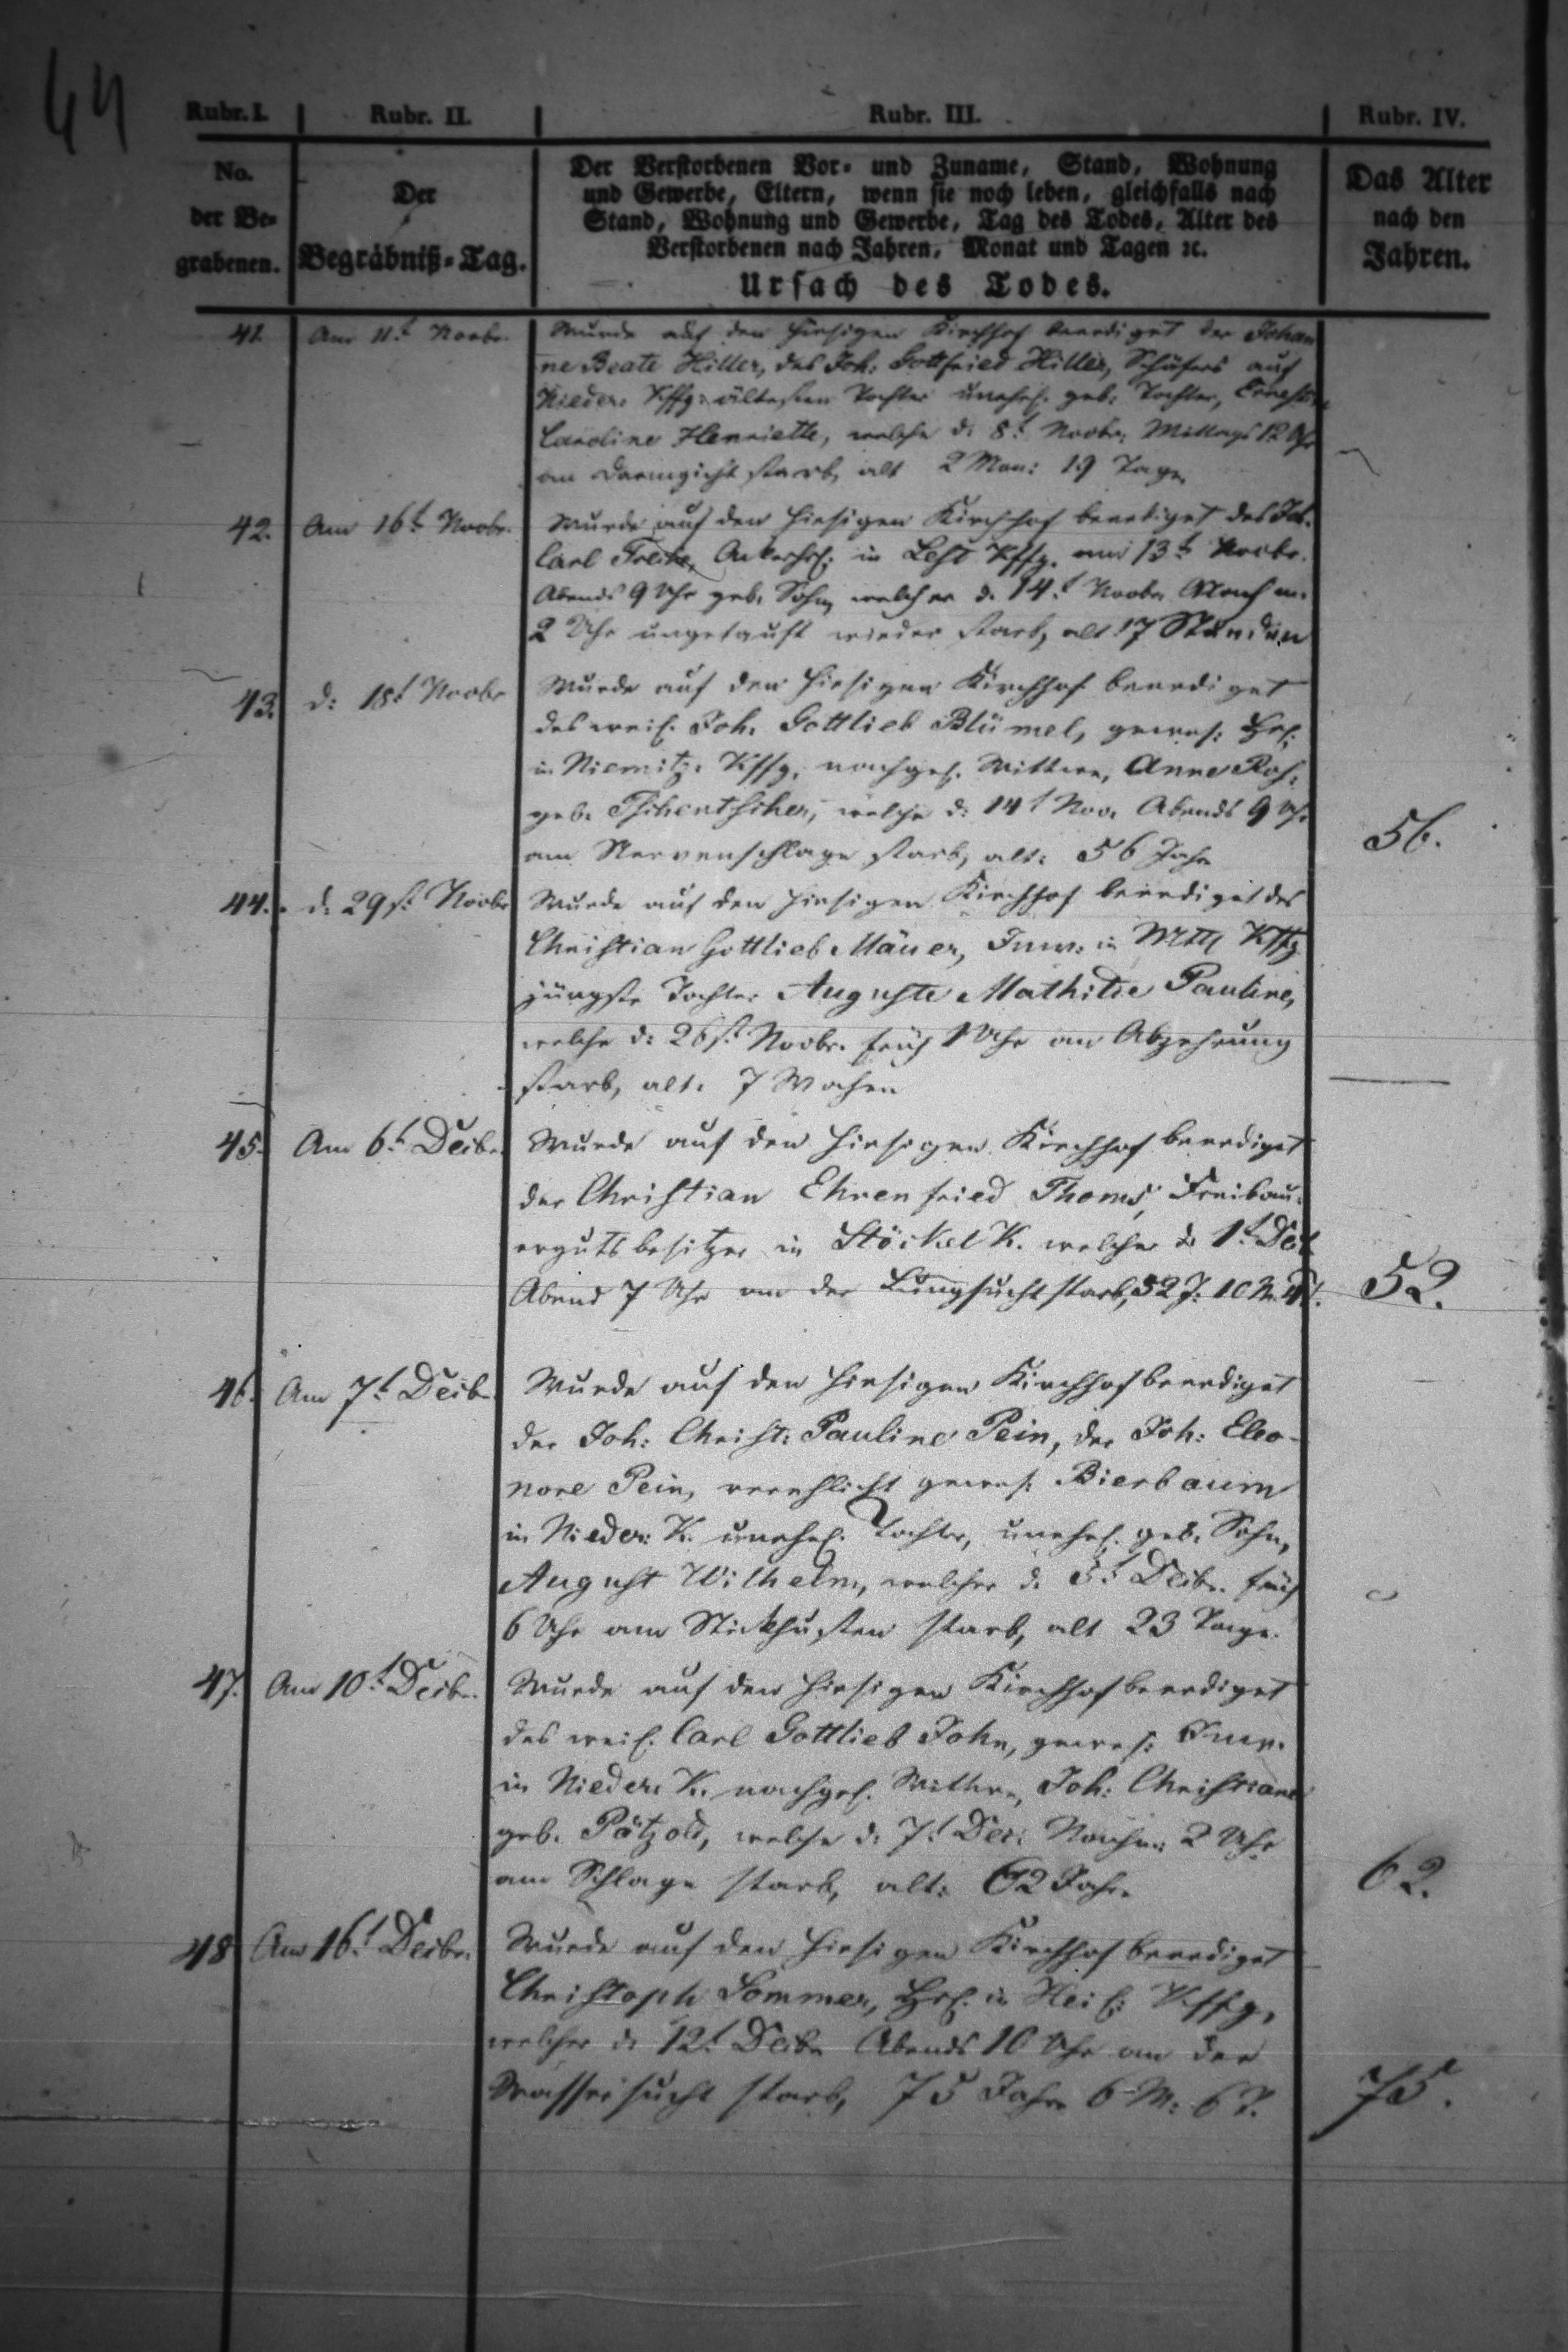 44
Rubr. I. Rubr. II. Rubr. III. Rubr. IV.
No. der Be-grabenen.
Der Begräbniß-Tag.
Der Verstorbenen Vor- und Zuname, Stand, Wohnung
und Gewerbe, Eltern, wenn sie noch leben, gleichfalls nach
Stand, Wohnung und Gewerbe, Tag des Todes, Alter des
Verstorbenen nach Jahren, Monat und Tagen ꝛc.
Ursach des Todes.
Das Alter
nach den
Jahren.
41. Am 11t. Novbr. Wurde auf den hiesigen Kirchhof beerdiget der Johan
ne Beate Hiller, des Joh: Gottfried Hiller, Schäfers auf
Nieder: Kffg: ältesten Tochter unehel. geb: Tochter,
Caroline Henriette, welche d: 8t. Novbr: Mittags 12 Uhr
an Darmgicht starb, alt 2 Mon: 19 Tage
42. Am 16t. Novbr. Wurde auf den hiesigen Kirchhof beerdiget des Joh.
Carl in Kffg. am 13t. Novbr.
Abends 9 Uhr geb. Sohn, welcher d. 14t. Novbr.
2 Uhr ungetauft wieder starb, alt 17 Stunden
43. d: 18t. Novbr Wurde auf den hiesigen Kirchhof beerdiget
des weil. Joh. Gottlieb Blümel, gewes: Hsl:
in Niemitz: Kffg, nachgel. Wittwe, Anne Ros:
geb: welche d: 14t Nov. Abends 9 Uhr
am Nervenschlage starb, alt: 56 Jahr 56.
44. d. 29st. Novbr Wurde auf den hiesigen Kirchhof beerdiget des
Christian Gottlieb Mäuer, Inw: in Mttl Kffg
jüngste Tochter Auguste Mathilde Pauline,
welche d: 26st. Novbr. früh 1 Uhr an Abzehrung
starb, alt: 7 Wochen
45. Am 6t. Decbr. Wurde auf den hiesigen Kirchhof beerdiget
der Christian Ehrenfried Thoms, Freibau-
ergutsbesitzer in Stöckel K. welcher d: 1t. Dec
Abend 7 Uhr an der Lungsucht starb, 52 J. 10 M. 52.
46. Am 7t. Decbr. Wurde auf den hiesigen Kirchhof beerdiget
der Joh: Christ: Pauline Pein, der Joh: Eleo-
nore Pein, verehlicht gewes: Bierbaum
in Nieder: K. unehel. Tochter, unehel. geb. Sohn,
August Wilhelm, welcher d. 5t Decbr. früh
6 Uhr am Stickhusten starb, alt 23 Tage.
47. Am 10t. Decbr. Wurde auf den hiesigen Kirchhof beerdiget
des weil. Carl Gottlieb John, gewes: Inw.
in Nieder: K. nachgel. Wittwe, Joh: Christiane
geb. Pätzold, welche d: 7t Dec: Nachm: 2 Uhr
am Schlage starb, alt: 62 Jahr. 62.
48 Am 16t. Decbr. Wurde auf den hiesigen Kirchhof beerdiget
Christoph Sommer, Hsl. in Kffg,
welcher d: 12t Decbr Abends 10 Uhr an der
Wassersucht starb, 75 Jahr 6 M: 6 T. 75.